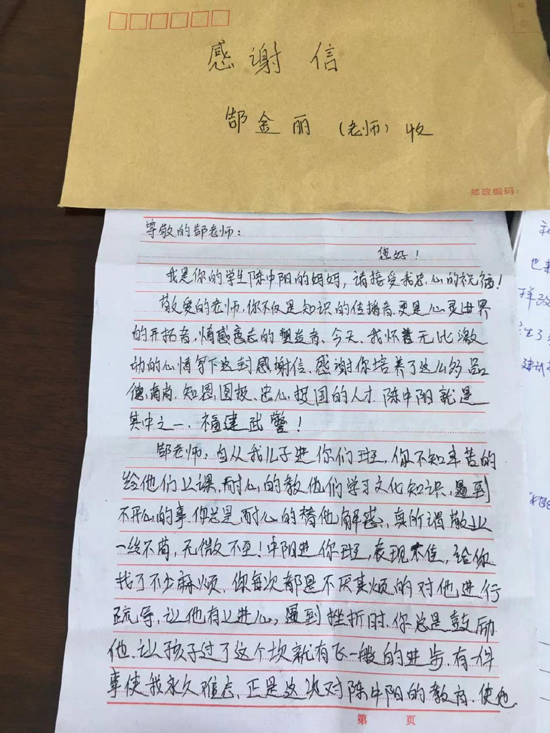 感谢信
郜金丽（老师）收
邮政编码：
尊敬的郜老师：
您好！
我是你的学生陈中阳的妈妈，请接受我忠心的祝福！
敬爱的老师，你不仅是知识的传播者，更是心灵世界
的开拓者，情感意志的塑造者、今天，我怀着无比激
动的心情写下这封感谢信、感谢你培养了这么多品
德高尚、知恩图报、忠心报国的人才，陈中阳就是
其中之一，福建武警！
郜老师：自从我儿子进你们班，你不知辛苦的
给他们上课，耐心的教他们学习文化知识，遇到
不开心的事，你总是耐心的替他解惑，真所谓敬业
一丝不苟，无微不至！中阳进你班，表现不佳，给你
找了不少麻烦，你每次都是不厌其烦的对他进行
疏导，让他有上进心，遇到挫折时，你总是鼓励
他，让孩子过了这个坎就有飞一般的进步，有一件
事使我永久难忘，正是这次对陈中阳的教育，使他
第 页